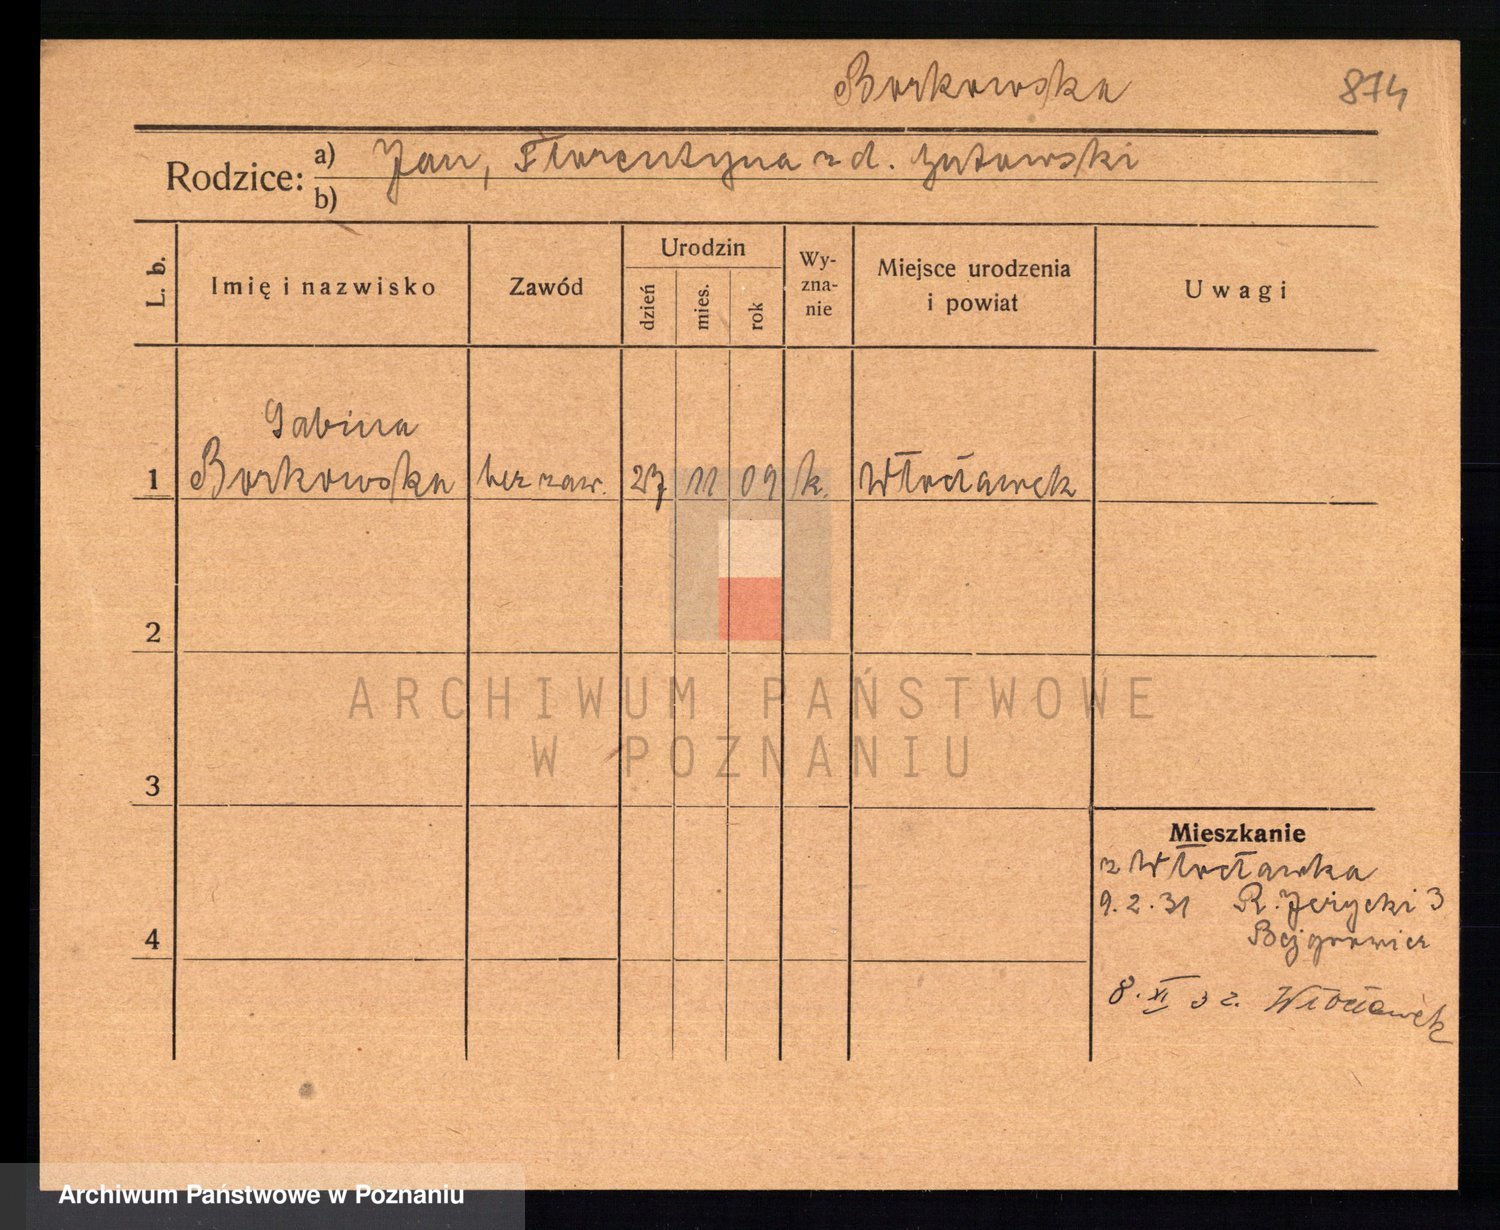 Borkowska 874
Rodzice: a) Jan, Florentyna z d.
b)
L. b.
Imię i nazwisko
Zawód
Urodzin
dzień
mies.
rok
Wy-
zna-
nie
Miejsce urodzenia
i powiat
Uwagi
Sabina
1 Borkowska bez zaw. 27 11 09 k. Włocławek
2
ARCHIWUM PAŃSTWOWE
W POZNANIU
3
Mieszkanie
z Włocławka
9.2.31 R. Jeżycki 3
4
8. XI 32. Włocławek
Archiwum Państwowe w Poznaniu